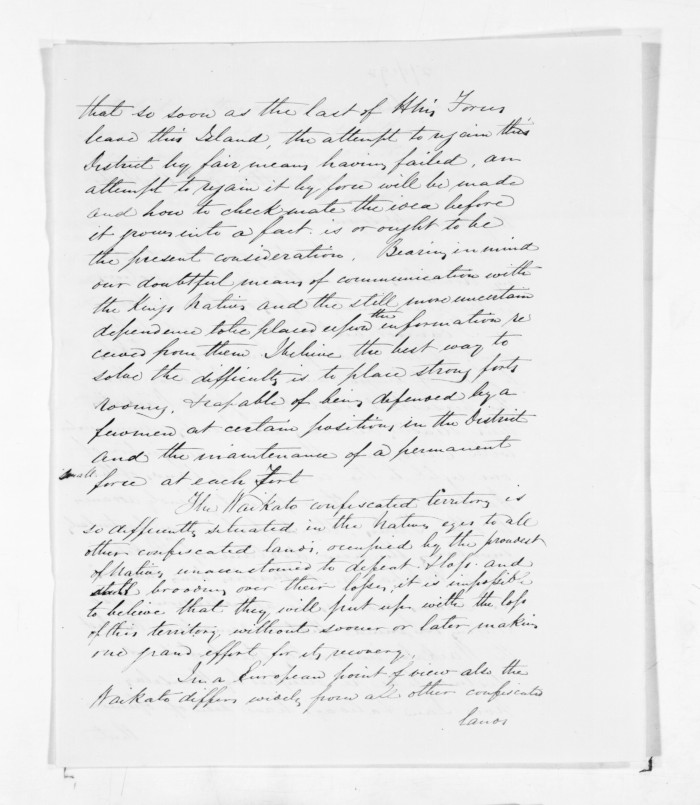 that so soon as the last of H his Forces
leave this Island, the attempt to regain this
District by fair means having failed, an
attempt to regain it by force will be made
and how to check mate the idea before
it grows into a fact. is or ought to be
the present consideration. Bearing in mind
our doubtful means of communication with
the Kings Natives and the still more uncertain
dependence to be placed upon the information re
ceived from them I believe the best way to
solve the difficulty is to place strong forts
roomy, & capable of being defended by a
few men at certain positions in the District
and the maintenance of a permanent
small force at each Fort
The Waikato confiscated territory is
so differently situated in the Natives eyes to all
other confiscated lands, occupied by the proudest
of Natives unaccustomed to defeat & loss and
still brooding over their losses, it is impossible
to believe that they will put up with the loss
of this territory without sooner or later making
one grand effort for its recovery.
In a European point of view also the
Waikato differs widely from all other confiscated
lands